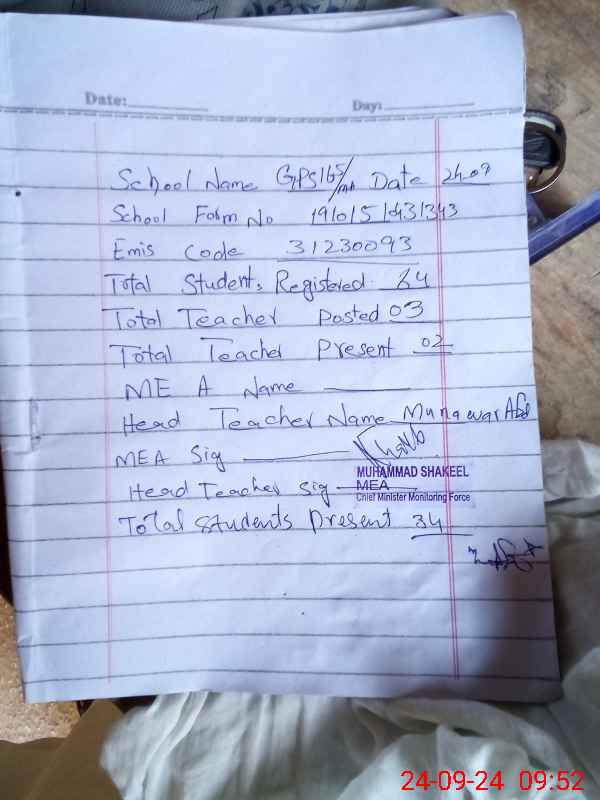 Date: Day:
School Name GPS 165/ Date 24.09
School Form No
Emis Code 31230093
Total Students Registered 34
Total Teacher posted 03
Total Teacher Present 02
ME A Name
Head Teacher Name Munawar
MEA Sig
MUHAMMAD SHAKEEL
Head Teacher Sig MEA
Chief Minister Monitoring Force
Total Students Present 34
24-09-24 09:52